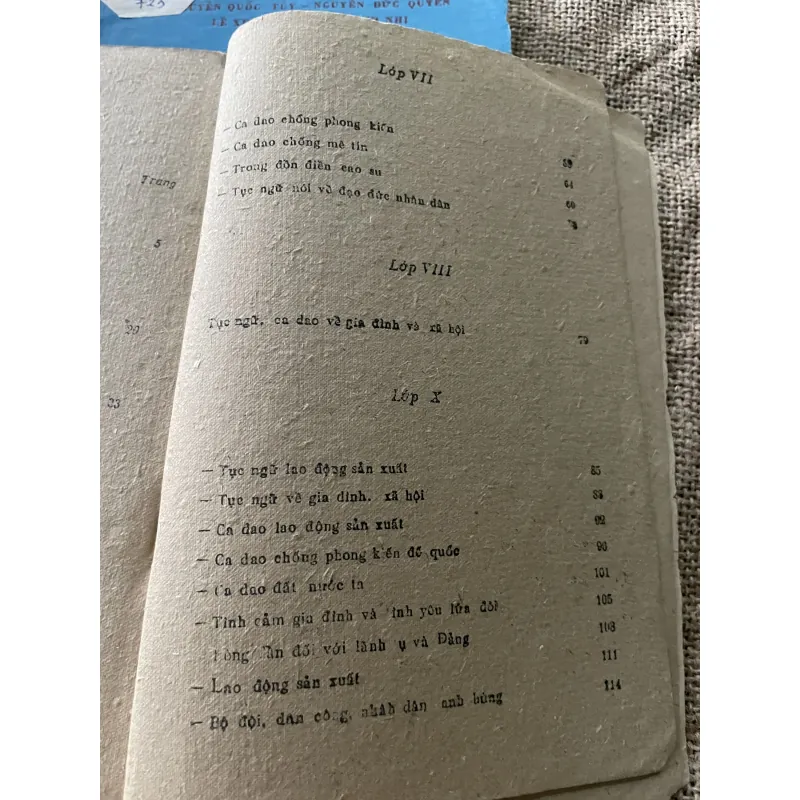 723
YÊN QUỐC TÚY — NGUYỄN ĐỨC QUYỀN
LÊ X NHỊ
Trang
5
29
33
Lớp VII
— Ca dao chống phong kiến
— Ca dao chống mê tín
— Trong đồn điền cao su 59
— Tục ngữ nói về đạo đức nhân dân 64
66
Lớp VIII
Tục ngữ, ca dao về gia đình và xã hội 79
Lớp X
— Tục ngữ lao động sản xuất 85
— Tục ngữ về gia đình. xã hội
— Ca dao lao động sản xuất 92
— Ca dao chống phong kiến đế quốc 96
— Ca dao đất nước ta 101
— Tình cảm gia đình và tình yêu lứa đôi 105
đối với lãnh tụ và Đảng 108
— Lao động sản xuất 111
— Bộ đội, dân công, nhân dân anh hùng 114